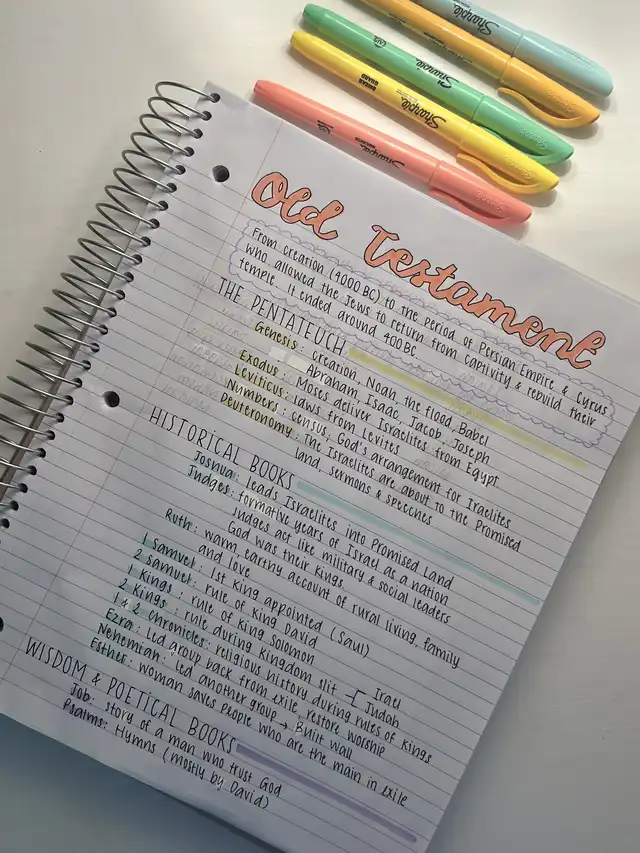 Sharpie
Sharpie
Sharpie
Sharpie
Sharpie
Old Testament
From creation (4000 BC) to the period of Persian Empire & Cyrus
who allowed the Jews to return from captivity & rebuild their
temple. It ended around 400BC
THE PENTATEUCH
Genesis: creation, Noah the flood, Babel
Abraham, Isaac, Jacob, Joseph
Exodus: Moses deliver Israelites from Egypt
Leviticus: laws from Levites
Numbers: census, God's arrangement for Iraelites
Deuteronomy: The Israelites are about to the Promised
land, sermons & speeches
HISTORICAL BOOKS
Joshua: leads Israelites into Promised Land
Judges: formative years of Israel as a nation
Judges act like military & social leaders
God was their kings
Ruth: warm earthy account of rural living, family
and love
1 Samuel: 1st King appointed (Saul)
2 Samuel: rule of King David
1 Kings: rule of King Solomon
2 Kings: rule during Kingdom slit Irael
Judah
1 & 2 Chronicles: religious history during rules of kings
Ezra: Led group back from exile, restore worship
Nehemiah: led another group → Built wall
Esther: woman saves people who are the main in exile
WISDOM & POETICAL BOOKS
Job: story of a man who trust God
Psalms: Hymns (mostly by David)